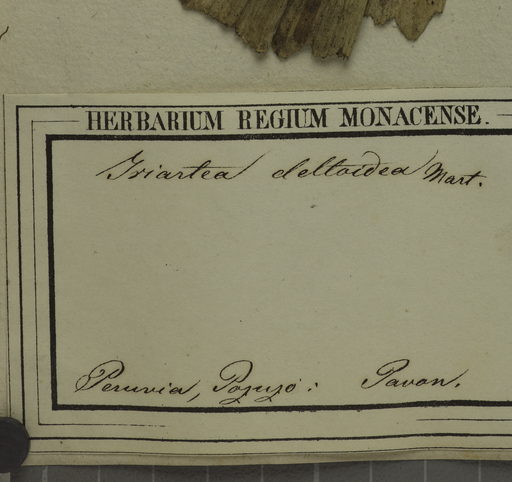 HERBARIUM REGIUM MONACENSE.
Iriartea deltoidea Mart.
Peruvia, Pozuzo: Pavon.